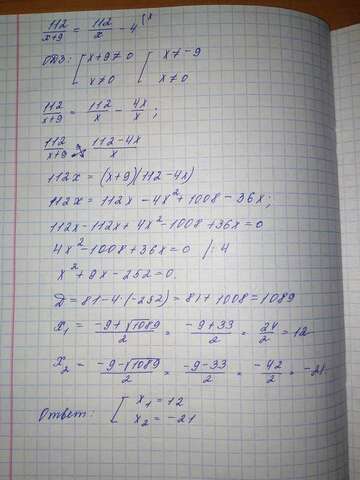 112/(x+9) = 112/x - 4 (x
ОДЗ: [x+9≠0 [x≠-9
x≠0 x≠0
112/(x+9) = 112/x - 4x/x;
112/(x+9) = (112-4x)/x
112x = (x+9)(112-4x)
112x = 112x - 4x² + 1008 - 36x;
112x - 112x + 4x² - 1008 + 36x = 0
4x² - 1008 + 36x = 0 /:4
x² + 9x - 252 = 0.
D = 81 - 4·(-252) = 81 + 1008 = 1089
x₁ = (-9+√1089)/2 = (-9+33)/2 = 24/2 = 12
x₂ = (-9-√1089)/2 = (-9-33)/2 = -42/2 = -21.
Ответ: [x₁ = 12
x₂ = -21